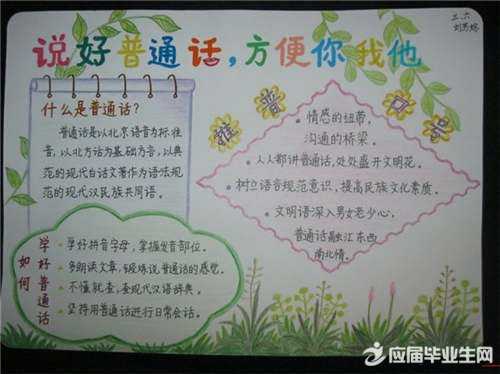 三.六
说好普通话，方便你我他
什么是普通话？
普通话是以北京语音为标准
音，以北方话为基础方言，以典
范的现代白话文著作为语法规
范的现代汉民族共同语。
推普口号
情感的纽带，
沟通的桥梁。
人人都讲普通话，处处盛开文明花。
树立语言规范意识，提高民族文化素质。
文明语深入男女老少心，
普通话融江东西
南北情。
如何
学好普通话
学好拼音字母，掌握发音部位。
多朗读文章，锻炼说普通话的感觉。
不懂就查，查现代汉语辞典。
坚持用普通话进行日常会话。
应届毕业生网